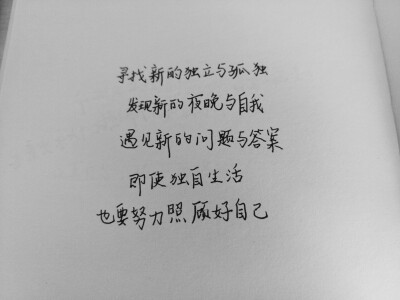 寻找新的独立与孤独
发现新的夜晚与自我
遇见新的问题与答案
即使独自生活
也要努力照顾好自己